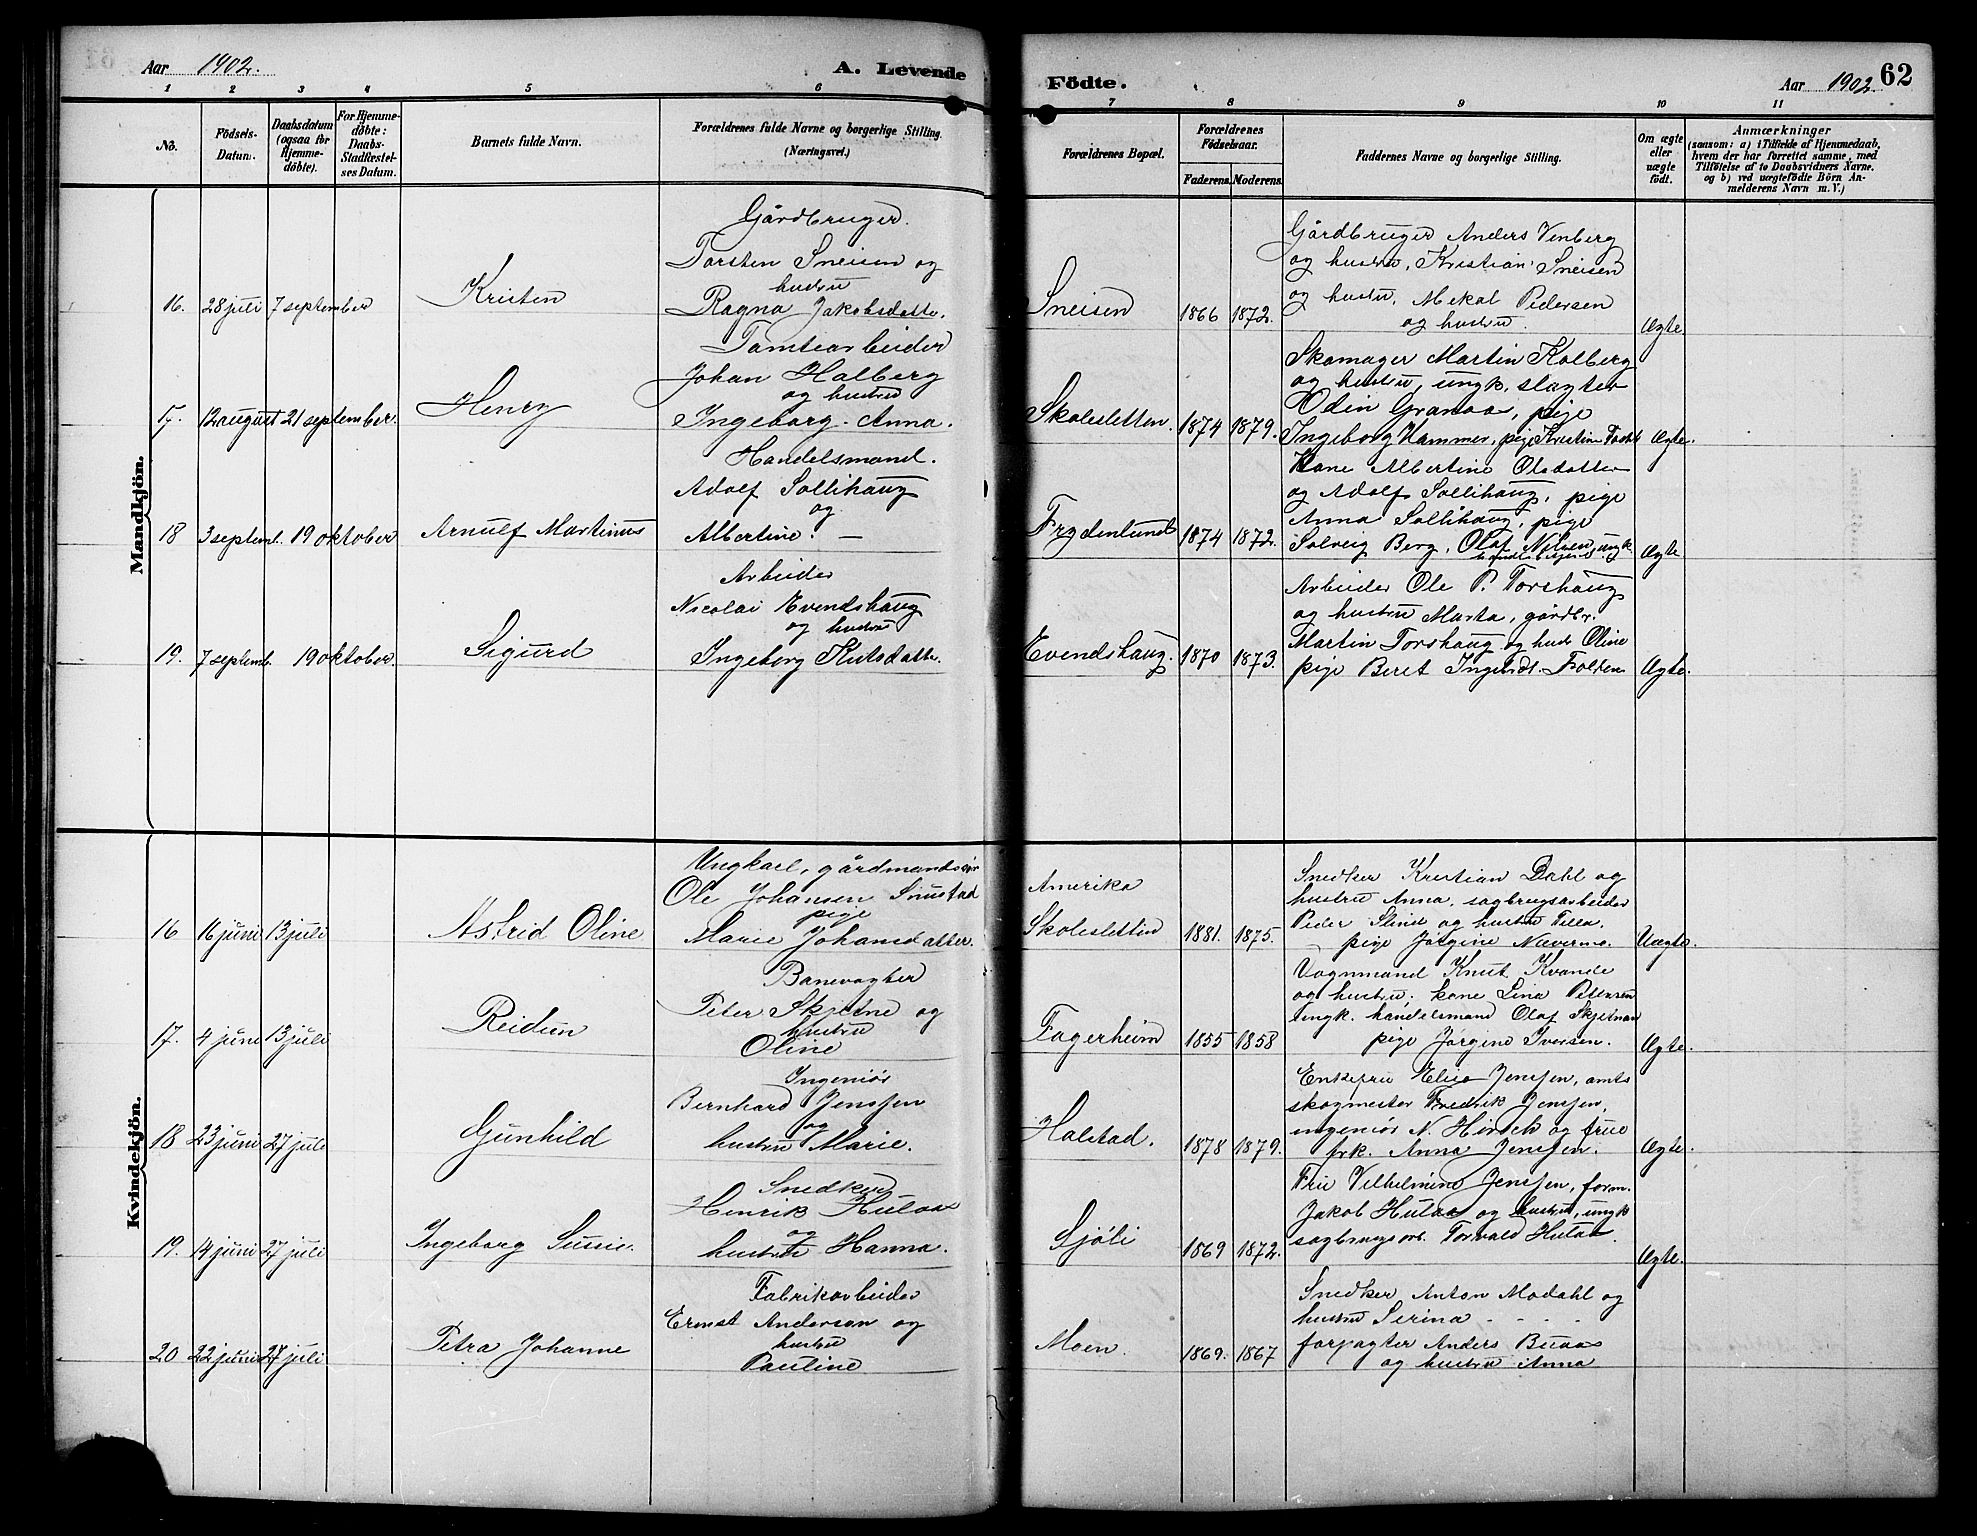 Aar 1902.
A. Levende
Födte.
Aar 1902.
62
1 2 3 4 5 6 7 8 9 10 11
No.
Födsels-
Datum.
Daabsdatum
(ogsaa for
Hjemme-
döbte).
For Hjemme-
döbte:
Daabs-
Stadfæstel-
ses Datum.
Barnets fulde Navn.
Forældrenes fulde Navne og borgerlige Stilling.
(Næringsvei.)
Forældrenes Bopæl.
Forældrenes
Födselsaar.
Faderens. Moderens.
Faddernes Navne og borgerlige Stilling.
Om ægte
eller
uægte
født.
Anmærkninger
(saasom: a) i Tilfælde af Hjemmedaab,
hvem der har forrettet samme, med
Tilföielse af to Daabsvidners Navne.
og b) ved uægtefödte Börn An-
melderens Navn m. V.)
Mandkjön.
16. 28 juli 7 september
Kristen
Gårdbruger.
Torsten Sneisen og
hustru
Ragna Jakobsdatter.
Sneisen
1866 1872.
Gårdbruger Anders Venberg
og hustru, Kristian Sneisen
og hustru, Mekal Pedersen
og hustru.
Ægte.
17. 12 august 21 september.
Henry
Tomtearbeider
Johan Halberg
og hustru
Ingeborg Anna.
Skolesletten.
1874 1879.
Skomager Martin Kolberg
og hustru, ungk. slagter
Odin Granaas, pige
Ingeborg Hammer, pige Kristine
Ægte.
18 3 septemb. 19 oktober
Arnulf Martinus
Handelsmand.
Adolf Sollihaug
og
Albertine. —
Frydenlund
1874 1872.
Kone Albertine Olsdatter
og Adolf Sollihaug, pige
Anna Sollihaug, pige
Solveig Berg, Olaf Nilsen, ungk.
Ægte
19. 7 septemb. 19 oktober.
Sigurd
Arbeider
Nicolai Evendshaug
og hustru
Ingeborg
Evendshaug.
1870 1873.
Arbeider Ole P. Torshaug
og hustru Marta, gårdbr.
Martin Torshaug og hust. Oline
pige Beret Ingebr.dt. Folden
Ægte.
Kvindekjön.
16. 16 juni 13 juli
Astrid Oline
Ungkarl, gårdmandssön
Ole Johansen Snustad
pige
Marie Johansdatter.
Amerika
Skolesletten
1881. 1875.
Snedker Kristian Dahl og
hustru Anna, sagbrugsarbeider
Peder Slind og hustru
pige Jørgine Nævermo.
Uægte.
17. 4 juni 13 juli
Reidun
Banevogter
Peter Skjetne og
hustru
Oline
Fagerheim
1855 1858
Vognmand Knut Kvande
og hustru, kone Lina Petersen
ungk. handelsmand Olaf Skjetnan
pige Jørgine Iversen.
Ægte.
18 23 juni 27 juli
Gunhild
Ingeniør
Bernhard Jenssen
og
hustru Marie.
Halstad.
1878 1879.
Enkefru Elisa Jenssen, amts
skogmester Fredrik Jenssen,
ingeniør N. Hirsch og frue
frk. Anna Jenssen.
Ægte.
19. 14 juni 27 juli
Ingeborg Sussie.
Snedker
Henrik Hulaas
og
hustru Hanna.
Sjøli
1869 1872.
Fru Vilhelmine Jenssen, form.
Jakob Hulaas og hustru, ungk
sagbrugsarb. Torvald Hulaas.
Ægte.
20 22 juni 27 juli
Petra Johanne
Fabrikarbeider
Ernst Anderson og
hustru
Pauline
Moen.
1869. 1867
Snedker Anton Modahl og
hustru Serina
forpagter Anders Buaas
og hustru Anna